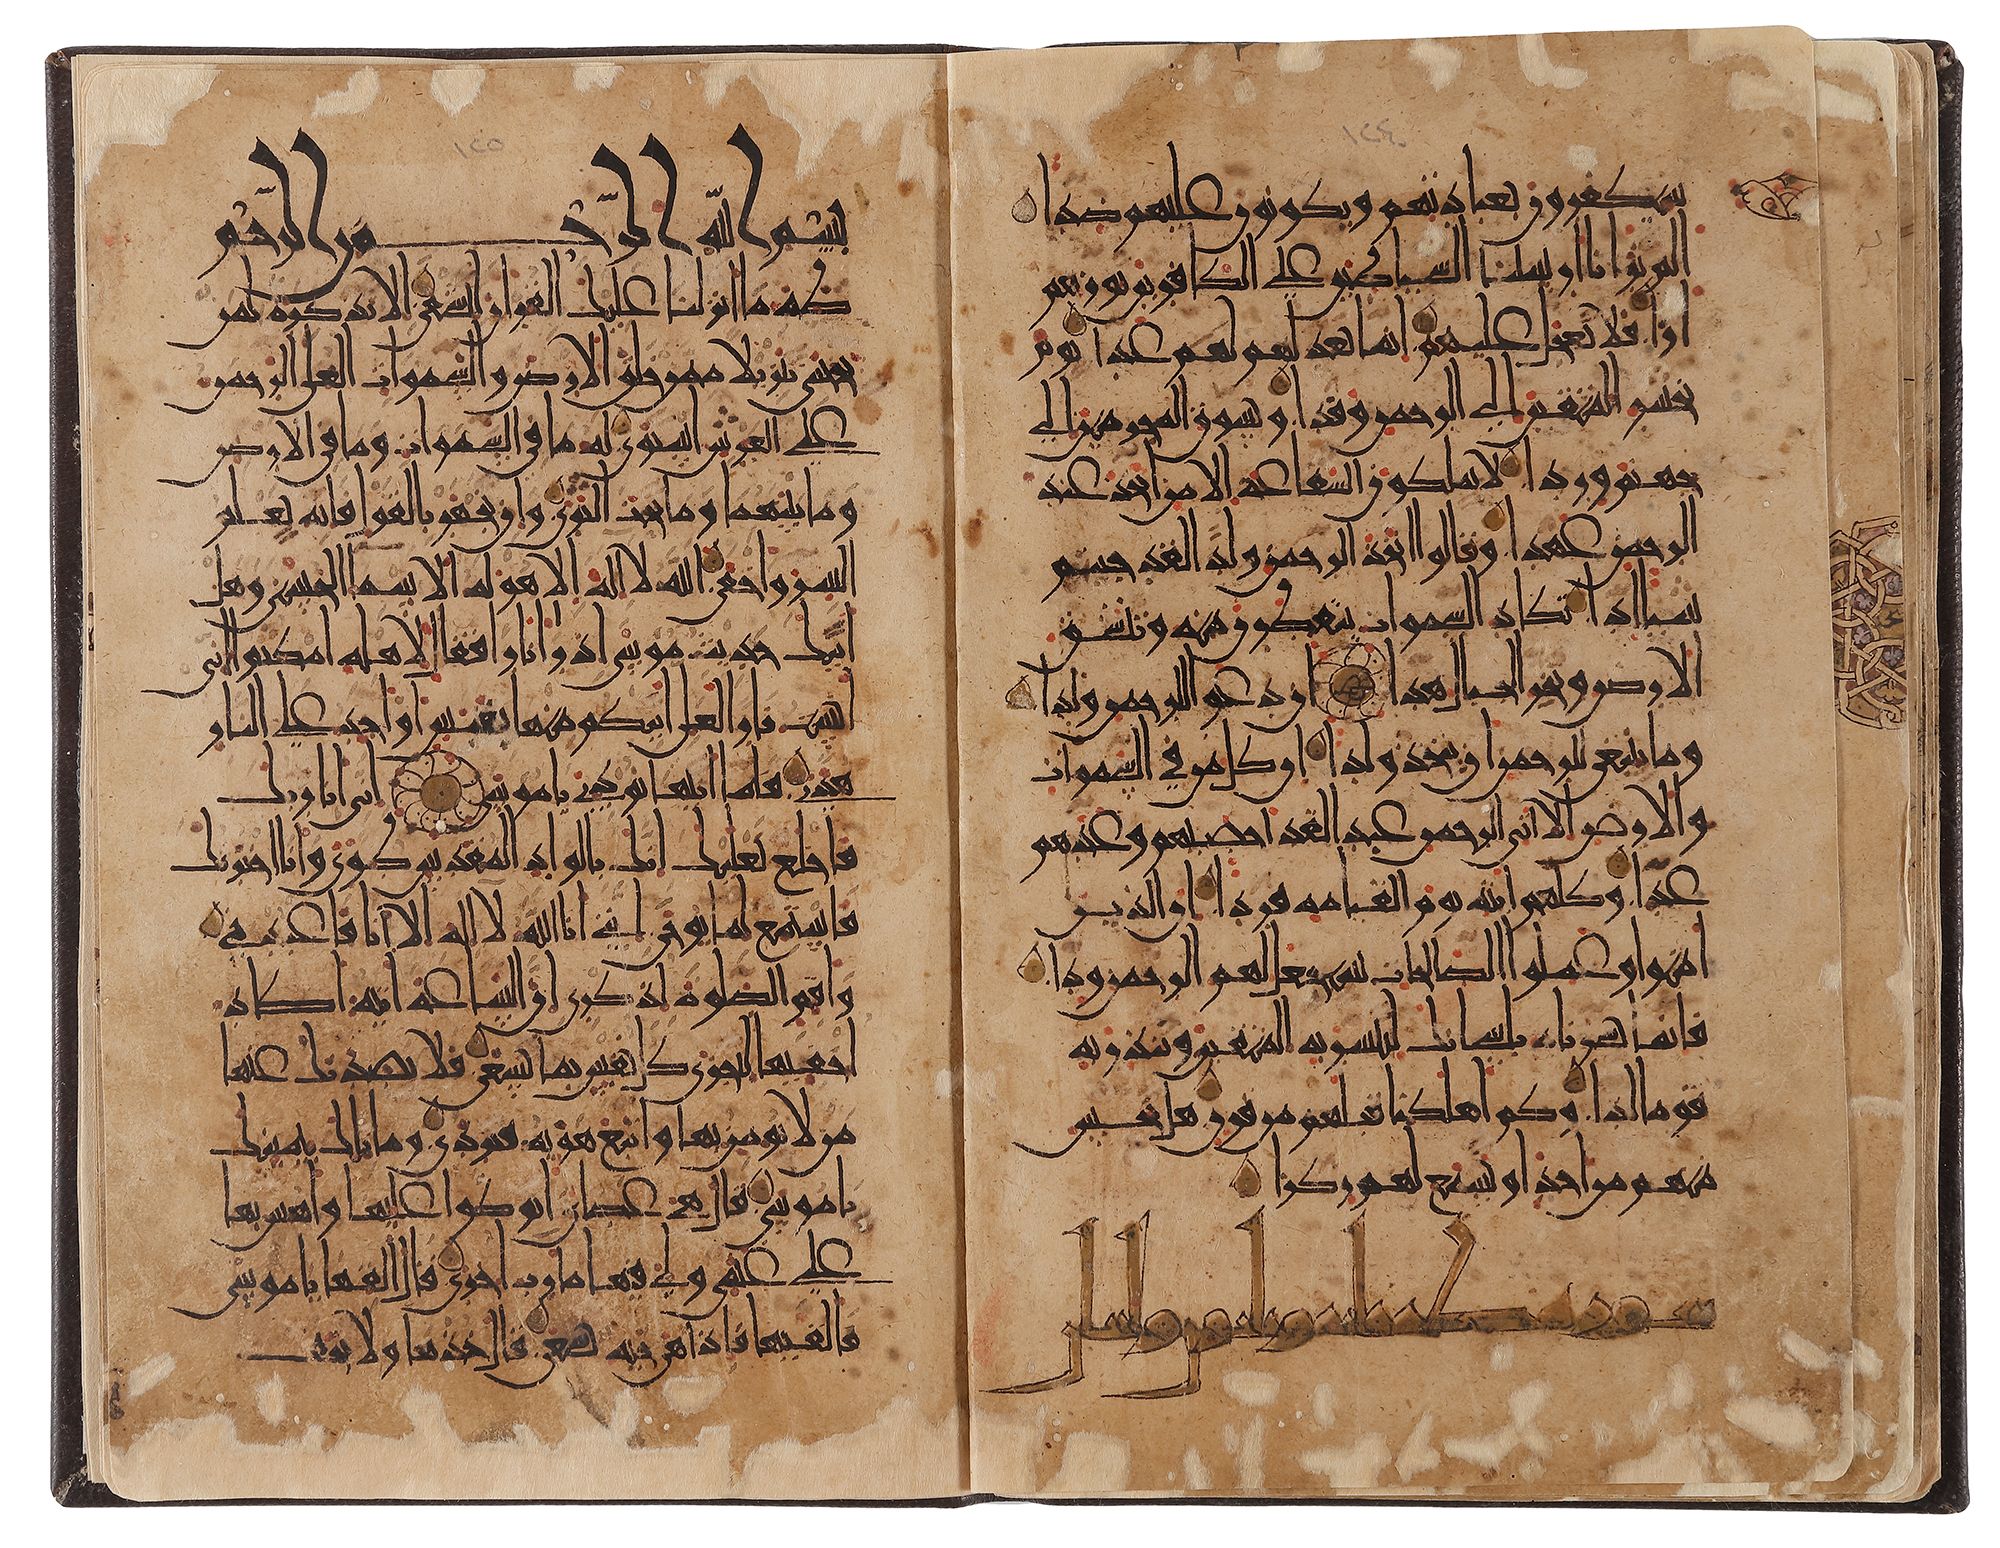 ١٢٤
سيكفرون بعبادتهم ويكونون عليهم ضدا
الم تر انا ارسلنا الشياطين على الكافرين تؤزهم
ازا فلا تعجل عليهم انما نعد لهم عدا يوم
نحشر المتقين الى الرحمن وفدا ونسوق المجرمين الى
جهنم وردا لا يملكون الشفاعة الا من اتخذ عند
الرحمن عهدا وقالوا اتخذ الرحمن ولدا لقد جئتم
شيئا ادا تكاد السموات يتفطرن منه وتنشق
الارض وتخر الجبال هدا ان دعوا للرحمن ولدا
وما ينبغي للرحمن ان يتخذ ولدا ان كل من في السموات
والارض الا اتي الرحمن عبدا لقد احصيهم وعدهم
عدا وكلهم اتيه يوم القيامة فردا ان الذين
امنوا وعملوا الصالحات سيجعل لهم الرحمن ودا
فانما يسرناه بلسانك لتبشر به المتقين وتنذر به
قوما لدا وكم اهلكنا قبلهم من قرن هل تحس
منهم من احد او تسمع لهم ركزا
سورة
١٢٥
بسم الله الرحمن الرحيم
طه ما انزلنا عليك القران لتشقى الا تذكرة لمن
يخشى تنزيلا ممن خلق الارض والسموات العلى الرحمن
على العرش استوى له ما في السموات وما في الارض
وما بينهما وما تحت الثرى وان تجهر بالقول فانه يعلم
السر واخفى الله لا اله الا هو له الاسماء الحسنى وهل
اتيك حديث موسى اذ را نارا فقال لاهله امكثوا اني
انست نارا لعلي اتيكم منها بقبس او اجد على النار
هدى فلما اتيها نودي يا موسى اني انا ربك
فاخلع نعليك انك بالواد المقدس طوى وانا اخترتك
فاستمع لما يوحى انني انا الله لا اله الا انا فاعبدني
واقم الصلوة لذكري ان الساعة اتية اكاد
اخفيها لتجزى كل نفس بما تسعى فلا يصدنك عنها
من لا يؤمن بها واتبع هويه فتردى وما تلك بيمينك
يا موسى قال هي عصاي اتوكوا عليها واهش بها
على غنمي ولي فيها مارب اخرى قال القها يا موسى
فالقيها فاذا هي حية تسعى قال خذها ولا تخف